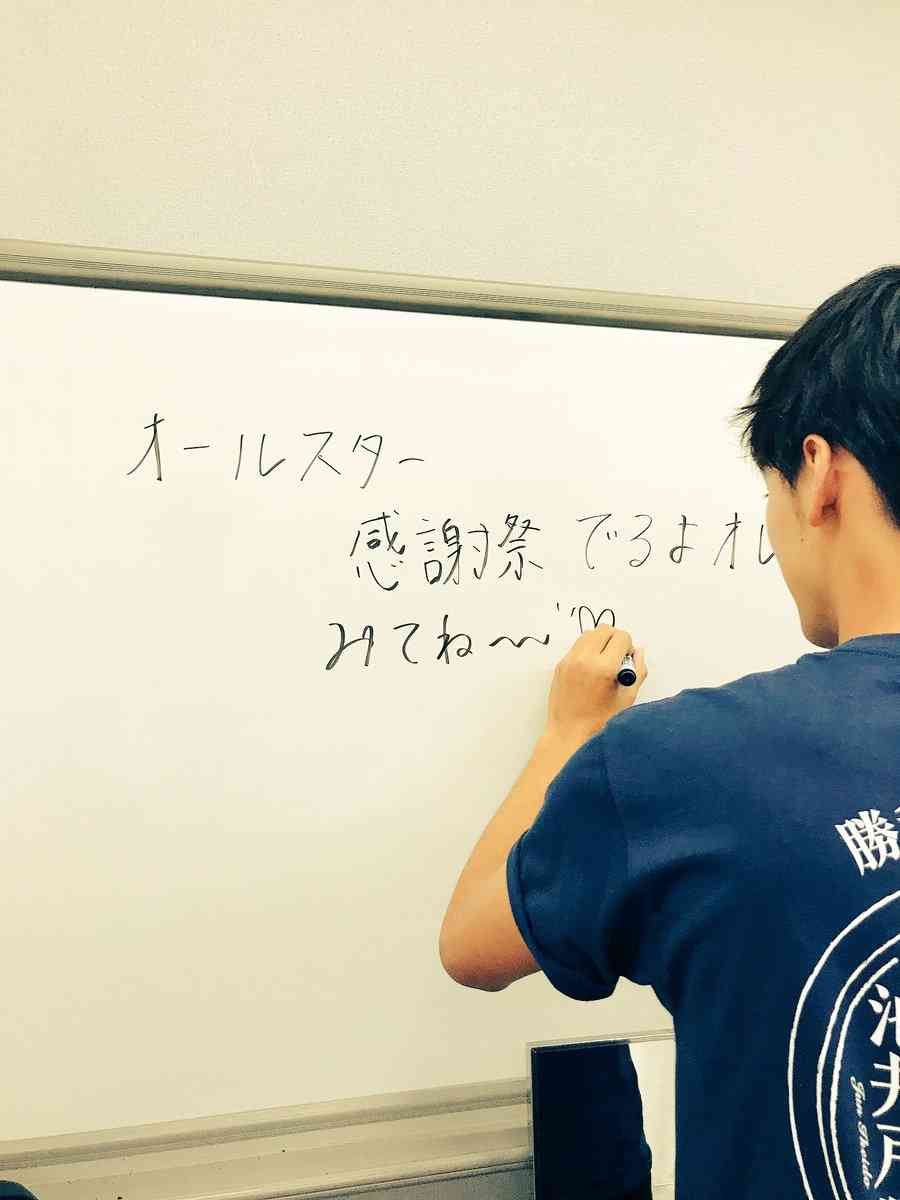 オールスター
感謝祭 でるよオレ
みてね〜〜♡
勝
池井戸
Jun Ikeido